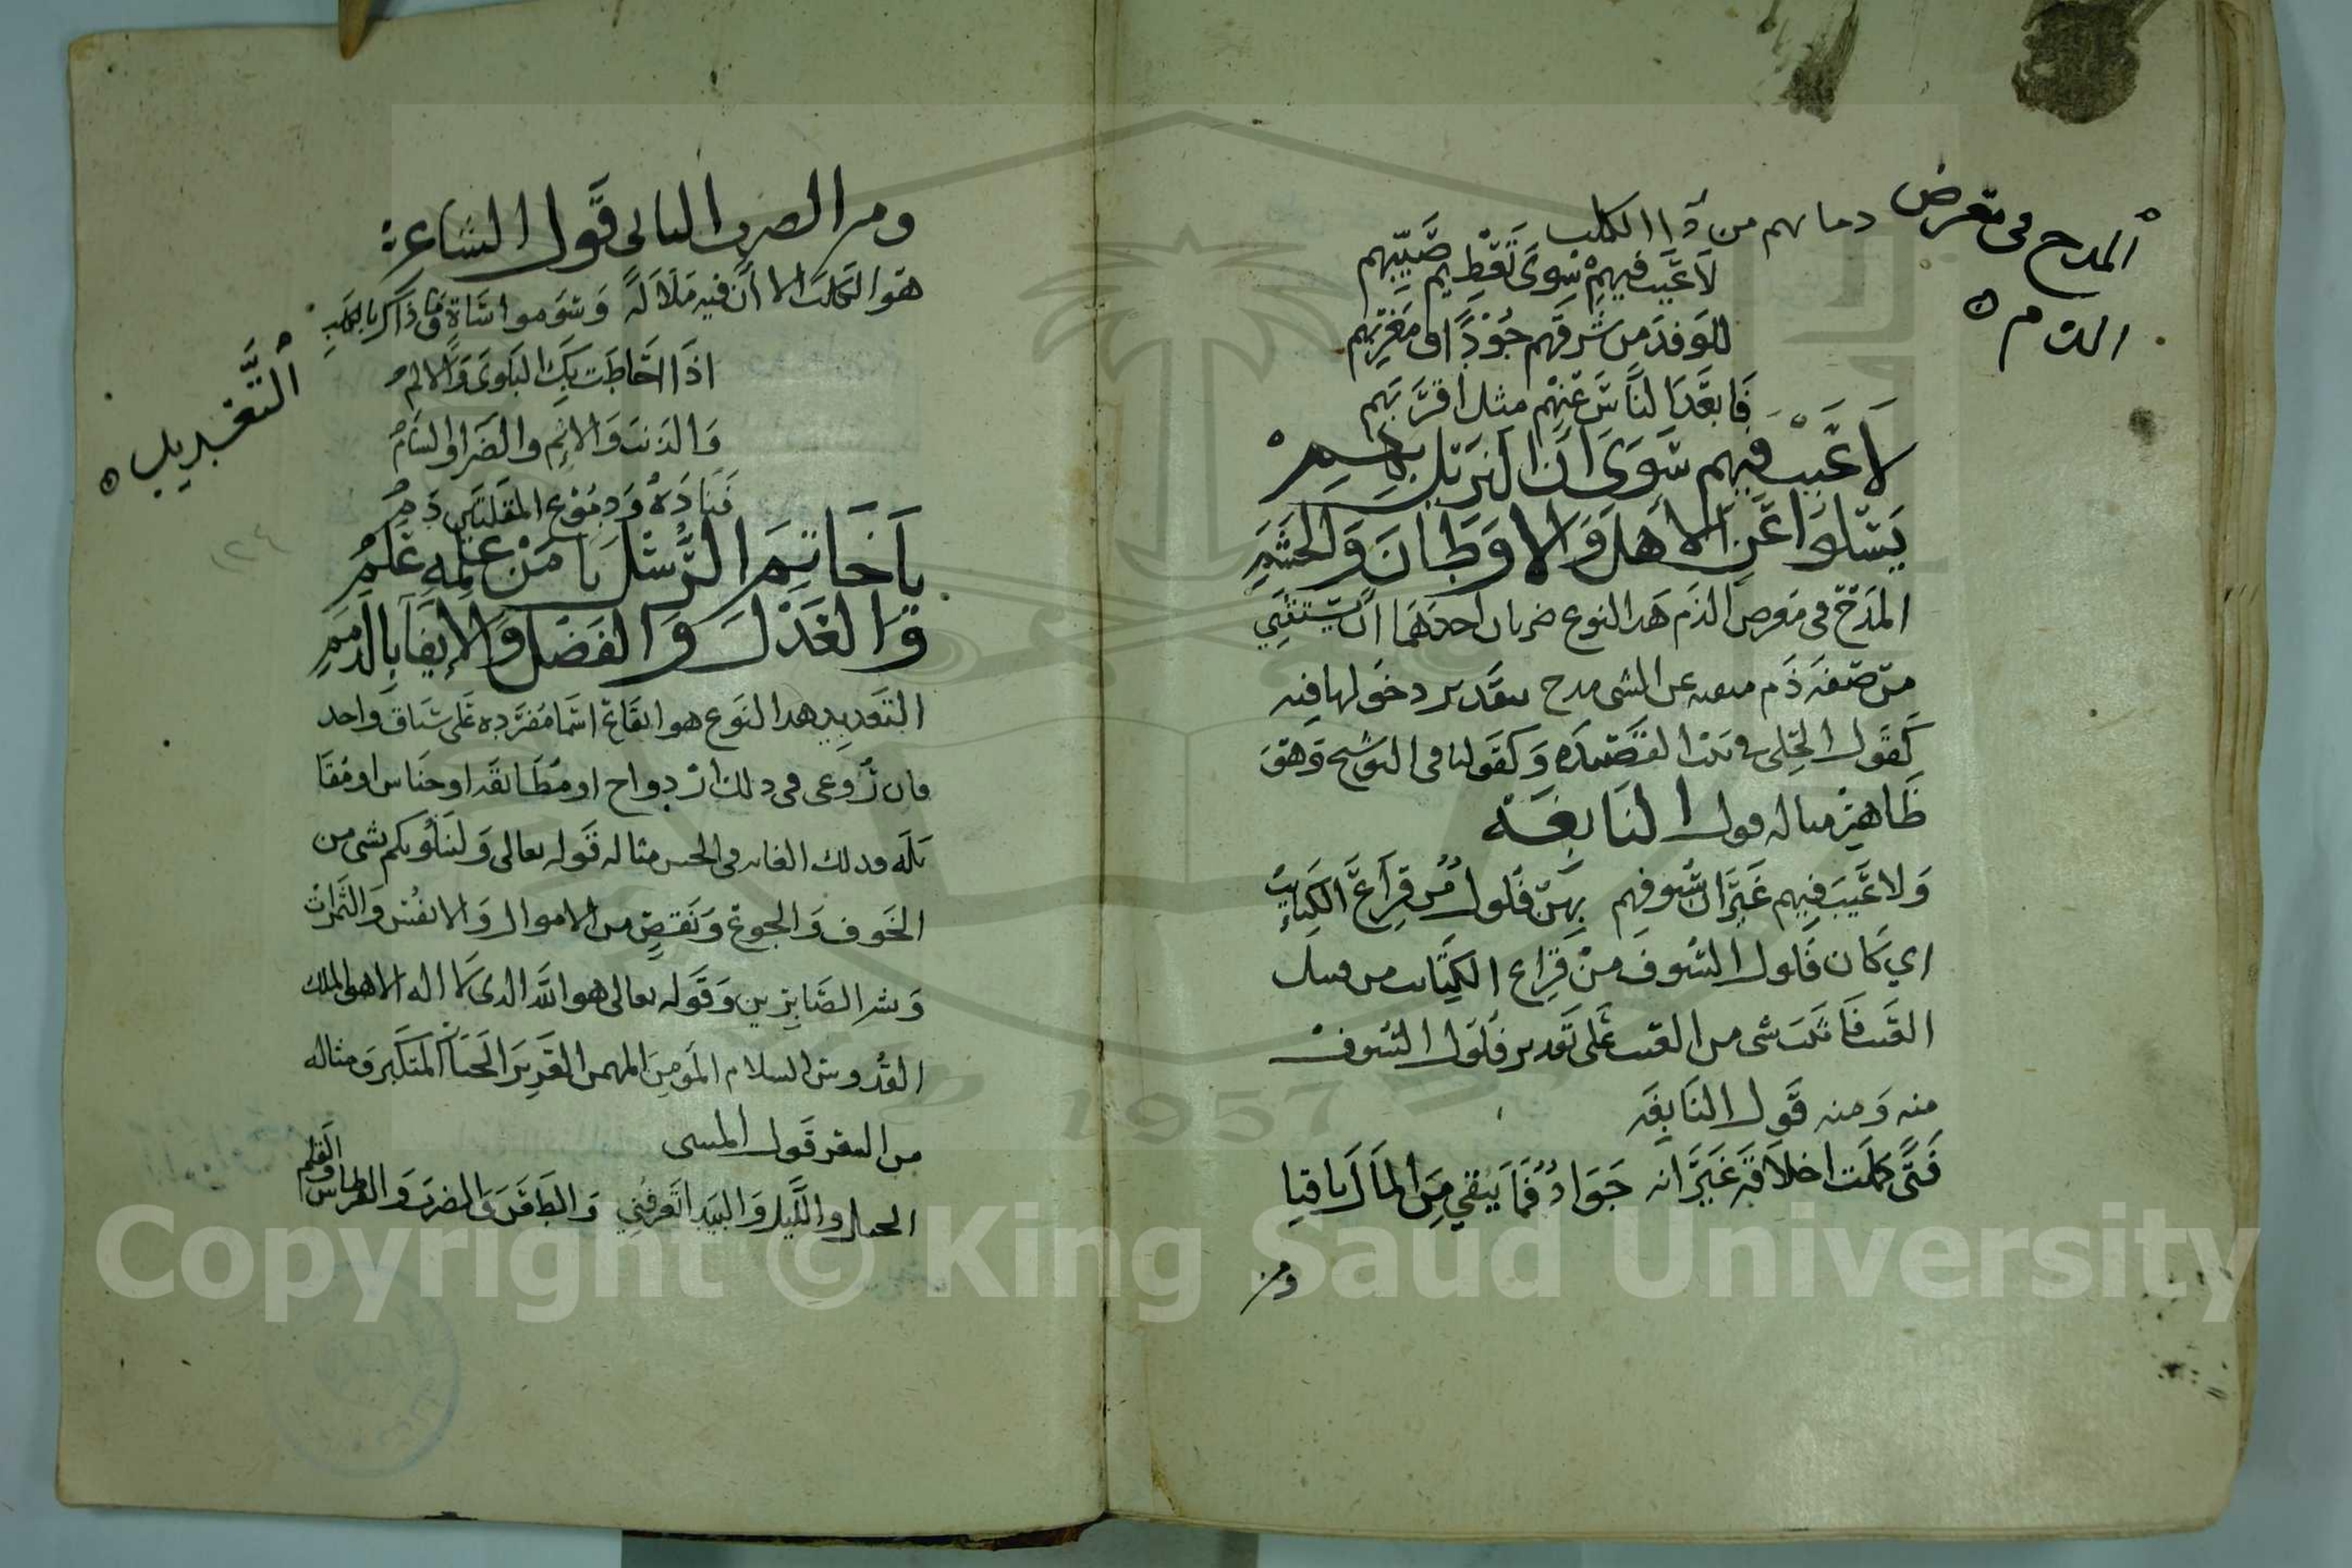 المدح في معرض
الذم
دماهم من ذا الكلب
لا عيب فيهم سوى تقطيم صيبهم
للوفد من شرقهم جودًا او مغربهم
فابعد الناس عنهم مثل اقربهم
لا عيب فيهم سوى ان النزيل بهم
يسلوا عن الاهل والاوطان والحشم
المدح في معرض الذم هدا النوع ضربان احدهما ان يستثني
من صفه ذم منفيه عن الشي مدح بتقدير دخولها فيه
كقول الحلي في بيت القصيده وكقولنا في التوشيح وهو
ظاهر مثاله قول النابغة
ولا عيب فيهم غير ان سيوفهم بهن فلول من قراع الكتايب
اي كان فلول السيوف من قراع الكتايب من قبيل
العيب فاثبت شي من العيب على تقدير فلول السيوف
منه ومنه قول النابغه
فتى كملت اخلاقه غير انه جواد فما يبقي من المال باقيا
ومن
ومن الضرب الثاني قول الشاعر
هو الكلب الا ان فيه ملالة وسوء مواساة وما ذاك بالكلب
التعديد
اذا احاطت بك البلوى والالم
والذنب والاثم والضرا والسام
فناده ودموع المقلتين دم
يا خاتم الرسل يا من علمه علم
والعدل والفضل والإيفا بالذمم
١٢٤
التعديد هدا النوع هو ايقاع اسما مفرده على سياق واحد
فان روعي في دلك ازدواج او مطابقه او جناس او مقا
بله فدلك الغايه في الحسن مثاله قوله تعالى ولنبلونكم بشي من
الخوف والجوع ونقص من الاموال والانفس والثمرات
وبشر الصابرين وقوله تعالى هو الله الدي لا اله الا هو الملك
القدوس السلام المومن المهيمن العزيز الجبار المتكبر ومثاله
من الشعر قول المتنبي
الخيل والليل والبيدا تعرفني والطعن والضرب والقرطاس والقلم
1957
Copyright © King Saud University